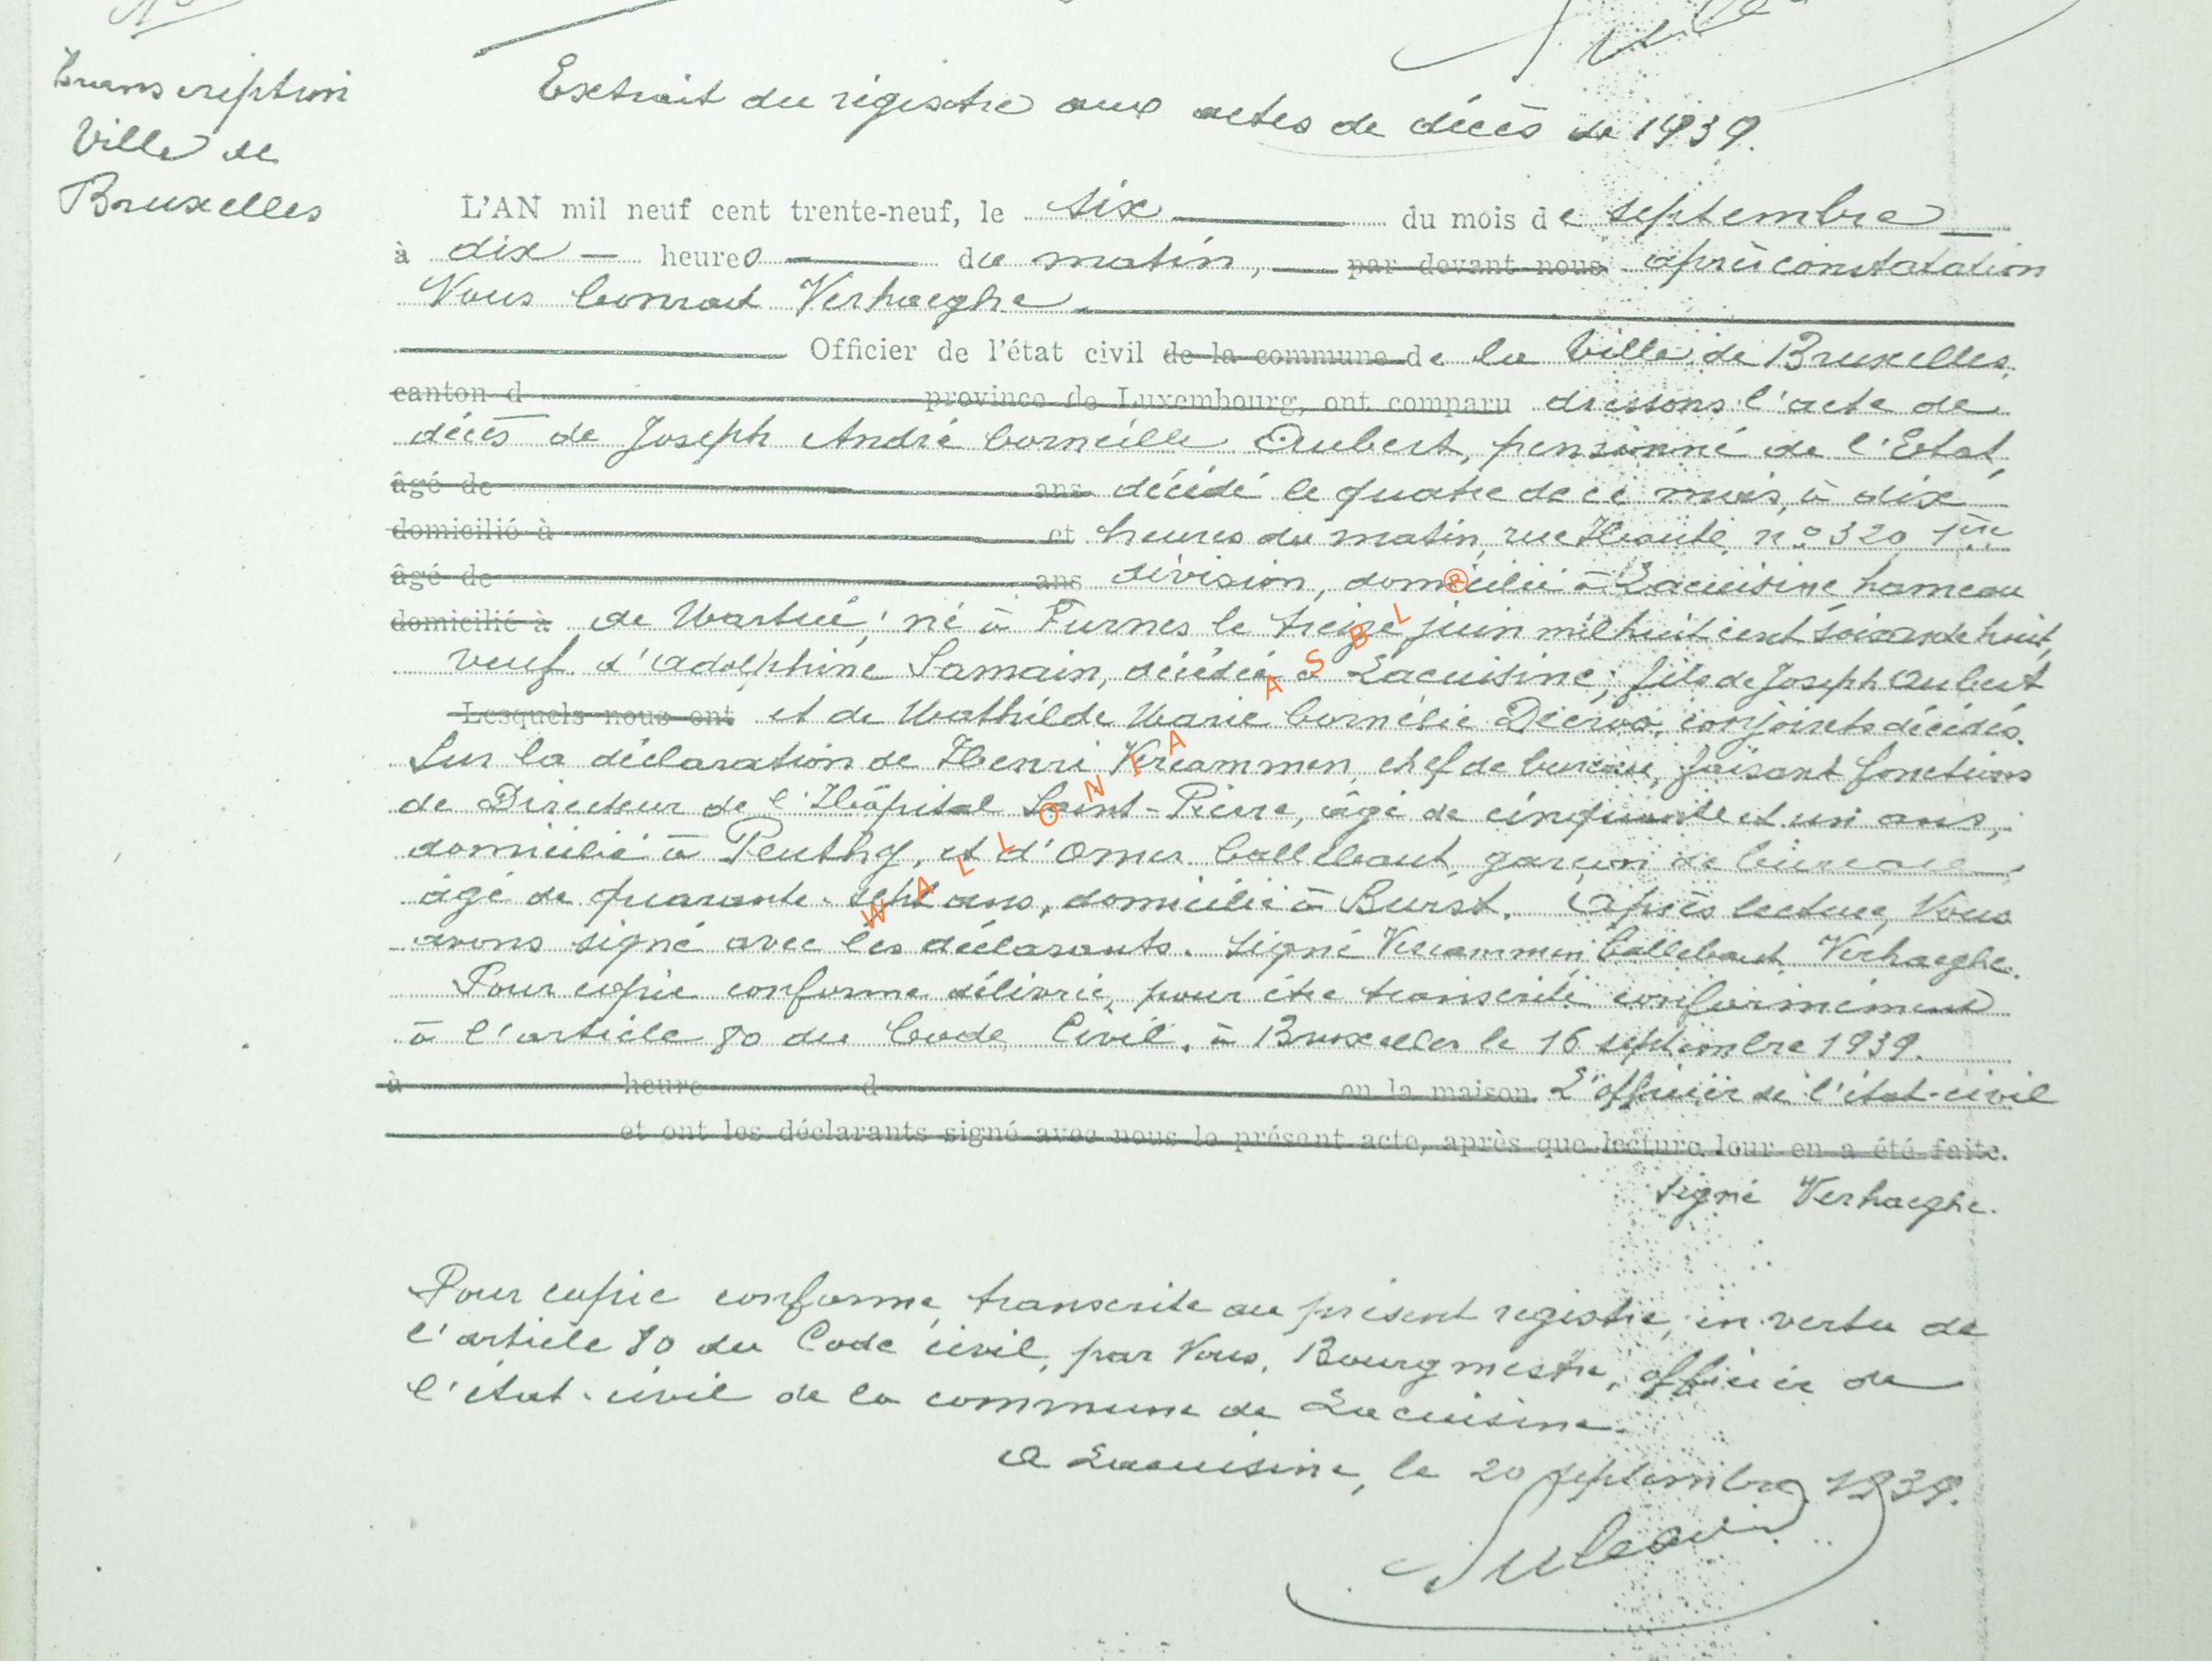 Transcription
Ville de
Bruxelles
Extrait du régistre aux actes de décès de 1939.
L'AN mil neuf cent trente-neuf, le six du mois de septembre
à dix heures du matin, par devant nous après constatation
Nous Conrad Verhaeghe
Officier de l'état civil de la commune de la Ville de Bruxelles,
canton d province de Luxembourg, ont comparu dressons l'acte de
décès de Joseph André Corneille Aubert, pensionné de l'Etat,
âgé de ans décédé le quatre de ce mois, à dix
domicilié à et heures du matin, rue Haute, n° 320 1ère
âgé de ans division, domicilié à Lacuisine hameau
domicilié à de Martué; né à Furnes le treize juin mil huit cent soixante huit,
veuf d'Adolphine Lamain, décédée à Lacuisine; fils de Joseph Aubert
Lesquels nous ont et de Mathilde Marie Cornélie Decroo, conjoints décédés.
Sur la déclaration de Henri Vercammen, chef de bureau, faisant fonctions
de Directeur de l'Hôpital Saint-Pierre, âgé de cinquante et un ans,
domicilié à Peuthy, et d'Omer Callebaut, garçon de bureau,
âgé de quarante-sept ans, domicilié à Burst. Après lecture, Nous
avons signé avec les déclarants. Signé Vercammen Callebaut Verhaeghe.
Pour copie conforme délivrée, pour être transcrite conformément
à l'article 80 du Code Civil. à Bruxelles le 16 septembre 1939.
à heure d en la maison L'officier de l'état-civil
et ont les déclarants signé avec nous le présent acte, après que lecture leur en a été faite.
signé Verhaeghe.
Pour copie conforme, transcrite au présent registre, en vertu de
l'article 80 du Code civil, par Nous, Bourgmestre, officier de
l'état-civil de la commune de Lacuisine.
A Lacuisine, le 20 septembre 1939.
WALLONIA ASBL ®